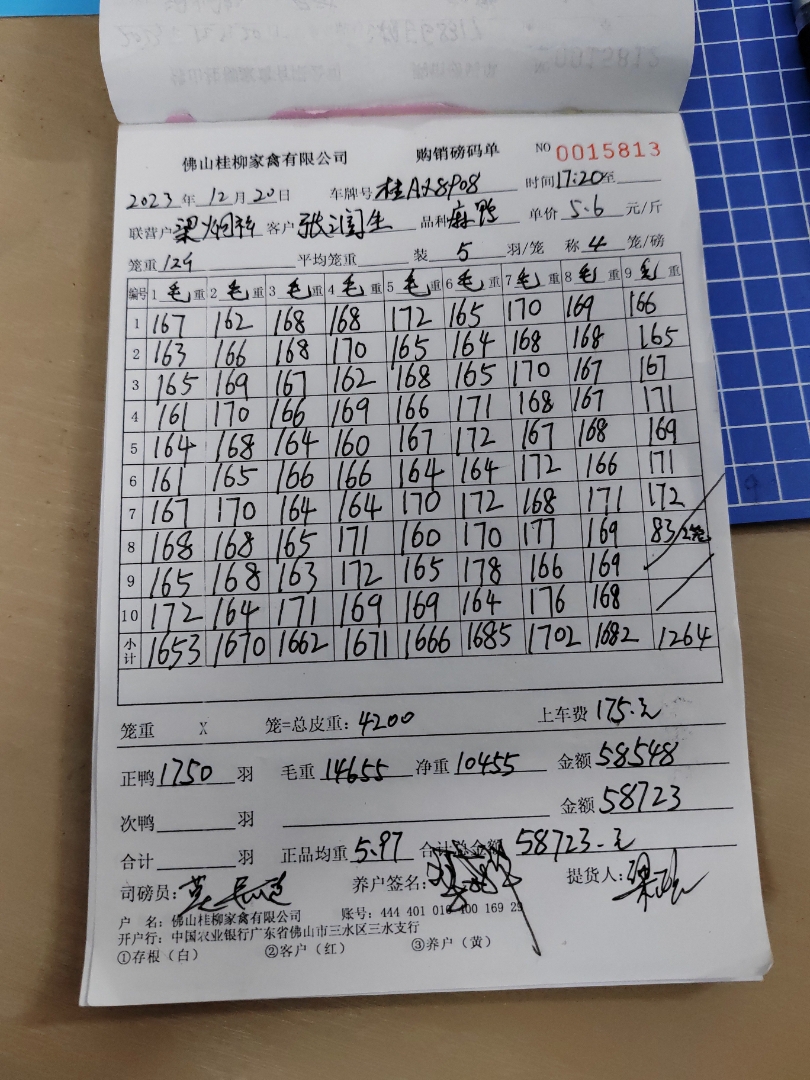 佛山桂柳家禽有限公司 购销磅码单 NO 0015813
2023年12月20日 车牌号 时间17:20至
联营户 客户 品种麻鸭 单价5.6元/斤
笼重12斤 平均笼重 装5羽/笼 称4笼/磅
编号 1毛重 2毛重 3毛重 4毛重 5毛重 6毛重 7毛重 8毛重 9毛重
1 167 162 168 168 172 165 170 169 166
2 163 166 168 170 165 164 168 168 165
3 165 169 167 162 168 165 170 167 167
4 161 170 166 169 166 171 168 167 171
5 164 168 164 160 167 172 167 168 169
6 161 165 166 166 164 164 172 166 171
7 167 170 164 164 170 172 168 171 172
8 168 168 165 171 160 170 177 169 83/2笼
9 165 168 163 172 165 178 166 169
10 172 164 171 169 169 164 176 168
小计 1653 1670 1662 1671 1666 1685 1702 1682 1264
笼重 X 笼=总皮重:4200 上车费175.元
正鸭1750羽 毛重14655 净重10455 金额58548
次鸭 羽 金额58723
合计 羽 正品均重5.97 合计总金额58723.元
司磅员: 养户签名: 提货人:
户 名:佛山桂柳家禽有限公司 账号:444 401 010 400 169 29
开户行:中国农业银行广东省佛山市三水区三水支行
①存根(白) ②客户(红) ③养户(黄)